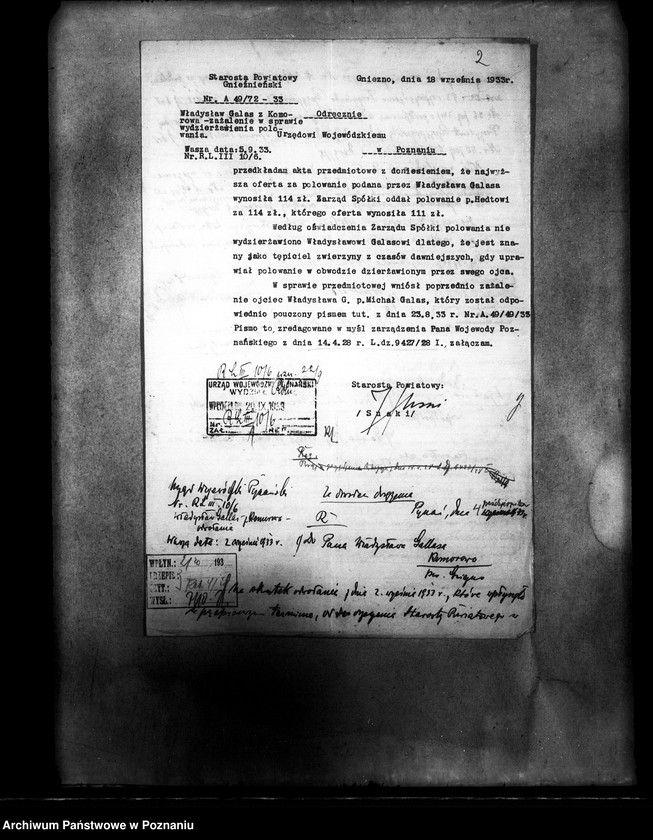 2
Starosta Powiatowy
Gnieźnieński
Gniezno, dnia 18 września 1933r.
Nr. A 49/72 - 33
Władysław Galas z Komo-
rowa -zażalenie w sprawie
wydzierżawienia polo-
wania.
Odręcznie
Urzędowi Wojewódzkiemu
Wasza data:5.9.33.
Nr.R.L.III 10/6.
w Poznaniu
przedkładam akta przedmiotowe z doniesieniem, że najwyż-
sza oferta za polowanie podana przez Władysława Galasa
wynosiła 114 zł. Zarząd Spółki oddał polowanie p.Hedtowi
za 114 zł., którego oferta wynosiła 111 zł.
Według oświadczenia Zarządu Spółki polowania nie
wydzierżawiono Władysławowi Galasowi dlatego, że jest zna-
ny jako tępiciel zwierzyny z czasów dawniejszych, gdy upra-
wiał polowanie w obwodzie dzierżawionym przez swego ojca.
W sprawie przedmiotowej wniósł poprzednio zażale-
nie ojciec Władysława G. p.Michał Galas, który został odpo-
wiednio pouczony pismem tut. z dnia 23.8.33 r. Nr.A.49/49/33
Pismo to, zredagowane w myśl zarządzenia Pana Wojewody Poz-
nańskiego z dnia 14.4.28 r. L.dz.9427/28 I, załączam.
RL III 10/6 22/9
URZĄD WOJEWÓDZKI POZNAŃSKI
WYDZIAŁ
WPŁYNĘŁO 20 IX 1933
RL III 10/6
Nr.
ZAŁ.
Starosta Powiatowy:
/ Suski/
Urząd Wojewódzki Poznański
Nr. RL III 10/6
Za dowodem doręczenia
Poznań, dnia 4 października
Władysław Galas z Komorowa
odwołanie
Wasza data: 2 września 1933 r.
Do Pana Władysława Gallasa
Komorowo
pow. Gniezno
WPŁYN.: 2/10 193
CZYT.:
WYSŁ.:
Na skutek odwołania z dnia 2. września 1933 r., które wpłynęło
w przepisanym terminie, od orzeczenia Starosty Powiatowego w
Archiwum Państwowe w Poznaniu